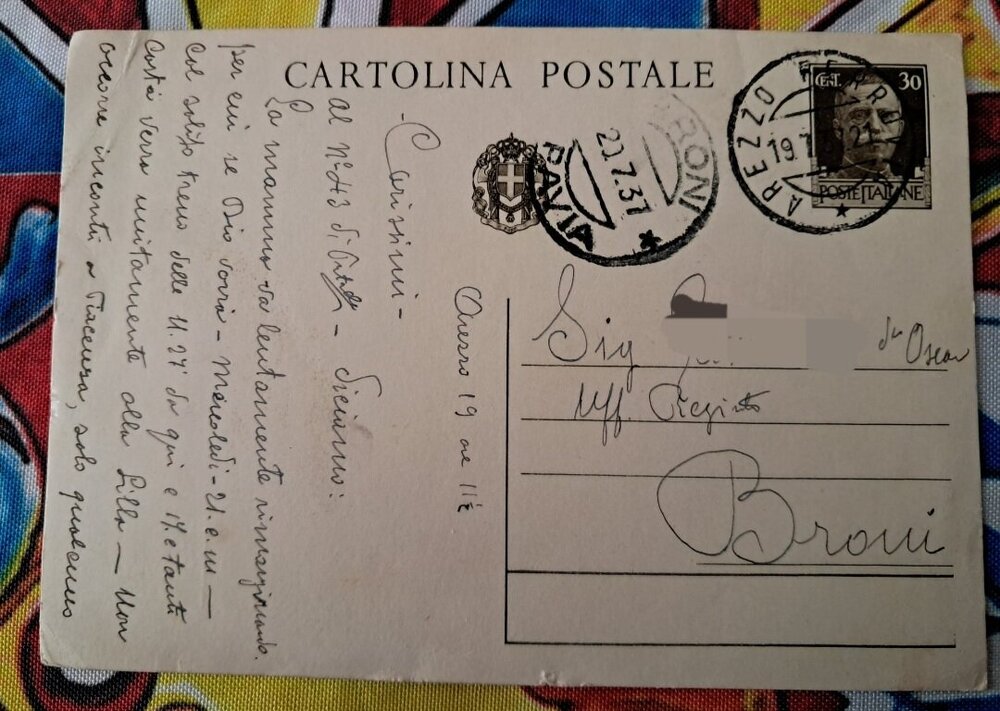 CARTOLINA POSTALE
CENT. 30
POSTE ITALIANE
AREZZO
19.7
BRONI
20.7.37
PAVIA
Arezzo 19 ore 11½
- Carissimi -
Al N° 43 d'Ot - Siciurno:
La mamma va lentamente rinvigorendo.
per cui se Dio vorrà - Mercoledì - 21. c. m -
col solito treno delle 11.27 da qui e 17. e tanti
costà verrà unitamente alla Lilla - Non
occorre incontri a Piacenza, solo qualcuno
Sig
du Oscar
Uff. Registro
Broni